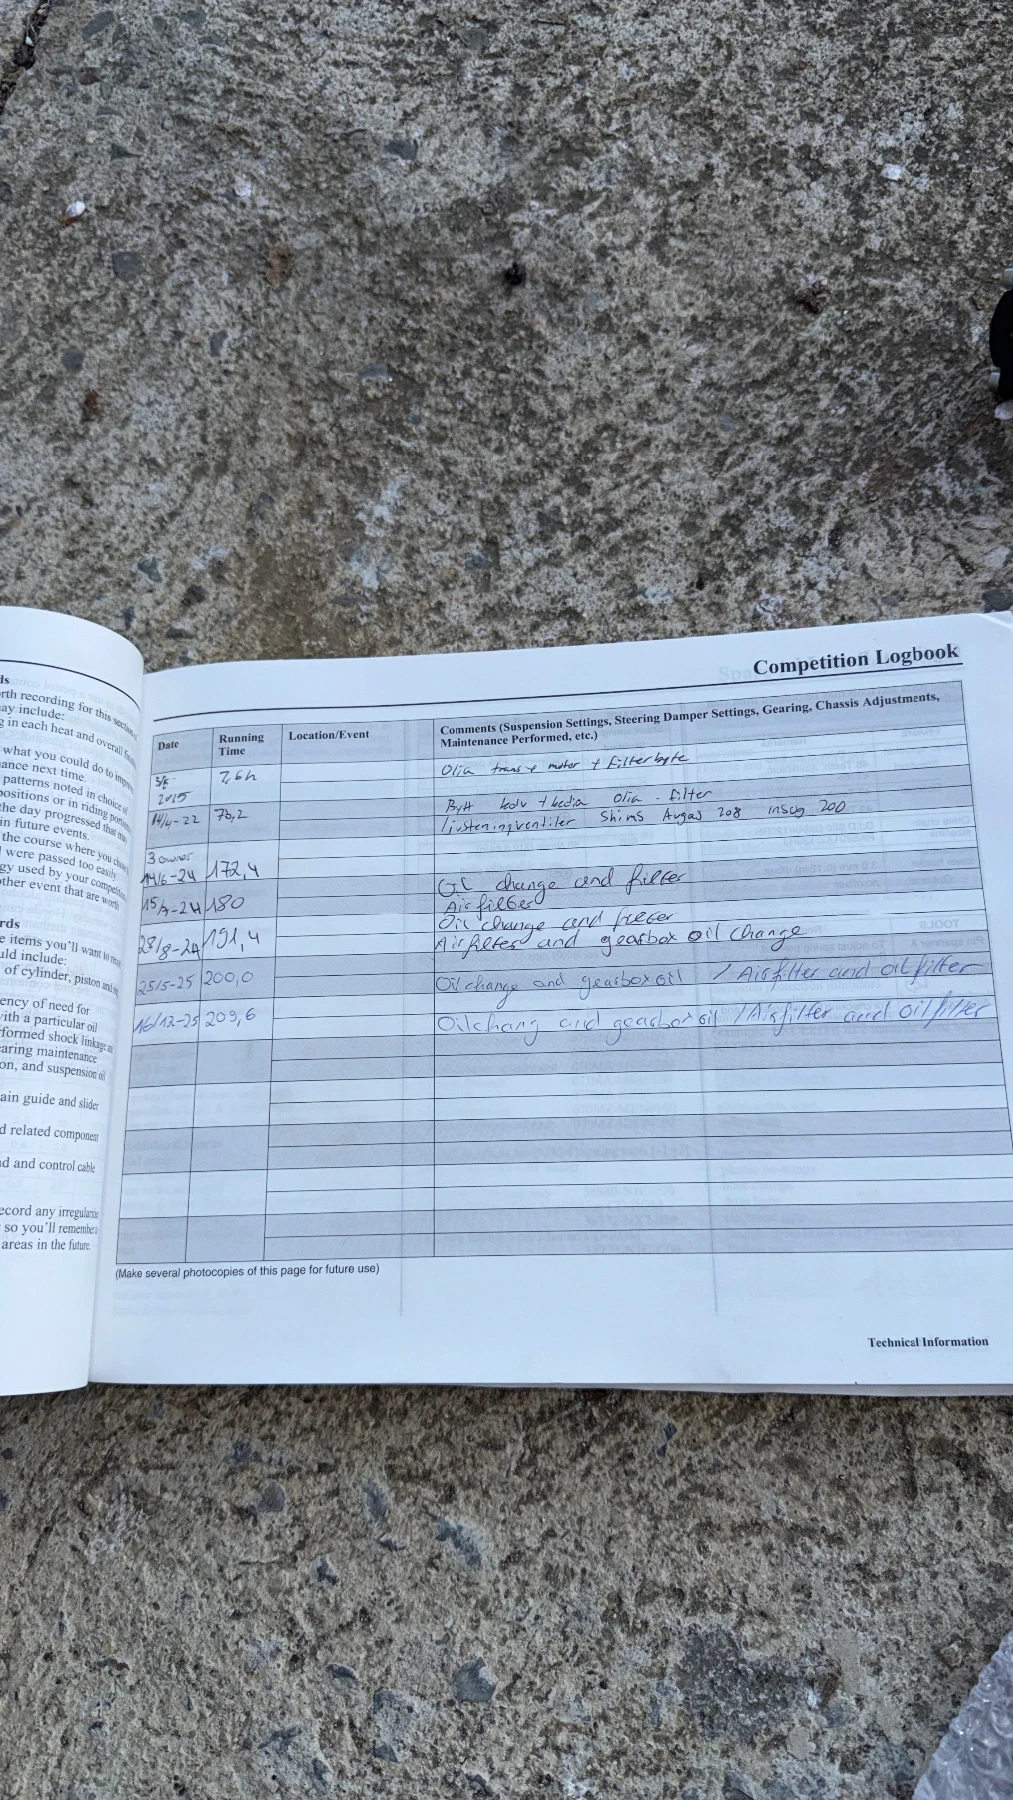 Competition Logbook
Date
Running Time
Location/Event
Comments (Suspension Settings, Steering Damper Settings, Gearing, Chassis Adjustments,
Maintenance Performed, etc.)
2015
7,6h
Olia trans + motor + Filterbyte
14/4-22
Bytt kolv + kedja Olia - filter
Shims Avgas 208 insug 200
3 owner
14/6-24 172,4
Oil change and filter
180
Airfilter
Oil change and filter
28/8-24 191,4
Airfilter and gearbox oil change
25/5-25 200,0
Oil change and gearbox oil / Airfilter and oil filter
16/12-25 209,6
Oil chang and gearbox oil / Airfilter and oil filter
(Make several photocopies of this page for future use)
Technical Information
rth recording for this
ay include:
g in each heat and overall
what you could do to
ance next time.
patterns noted in choice of
positions or in riding
the day progressed that
in future events.
the course where you
were passed too easily
gy used by your
other event that are worth
rds
e items you'll want to
uld include:
of cylinder, piston and
ency of need for
with a particular oil
formed shock linkage
earing maintenance
on, and suspension oil
ain guide and slider
d related component
d and control cable
ecord any
so you'll remember
areas in the future.